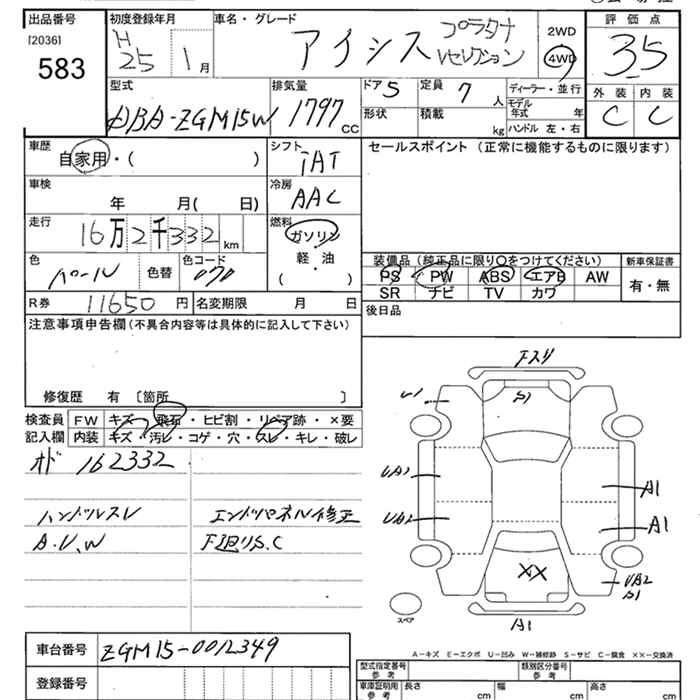 出品番号 初度登録年月 車名・グレード 評価点
[2036] H アイシス プラタナ 2WD
583 25 1月 Vセレクション 4WD 3.5
型式 排気量 ドア 5 定員 7人 ディーラー・並行 外装 内装
DBA-ZGM15W 1797cc 形状 積載 kg モデル年式 年 C C
ハンドル 左・右
車歴 シフト セールスポイント (正常に機能するものに限ります)
自家用・( ) IAT
車検 冷房
年 月( 日) AAC
走行 燃料
16万2千332km ガソリン
色 色替 色コード 軽・油 装備品(純正品に限り○をつけてください) 新車保証書
パール 070 ( ) PS PW ABS エアB AW 有・無
R券 11650円 名変期限 月 日 SR ナビ TV カワ
注意事項申告欄(不具合内容等は具体的に記入して下さい) 後日品
修復歴 有 〔箇所 〕
検査員 FW キズ・飛石・ヒビ割・リペア跡・×要
記入欄 内装 キズ・汚レ・コゲ・穴・スレ・キレ・破レ
オド 162332
ハンドルスレ エンドパネル修正
A.U.W 下廻りS.C
Fスリ
S1
U1
UA2
UA2
A1
A1
XX
UA2
S1
スペア
A1
A-キズ E-エクボ U-凹み W-補修跡 S-サビ C-腐食 ××-交換済
車台番号 ZGM15-0012349
登録番号
型式指定番号 参考 類別区分番号 参考
車庫証明用 参考 長さ cm 幅 cm 高さ cm